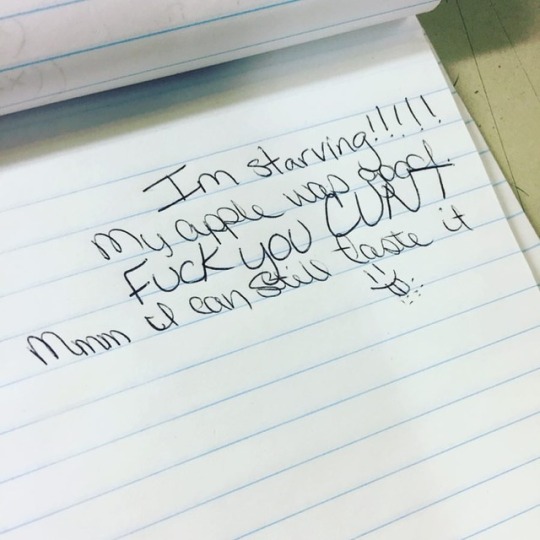 Im starving!!!!!
My apple was good.
FUCK YOU CUNT
Mmm I can still taste it